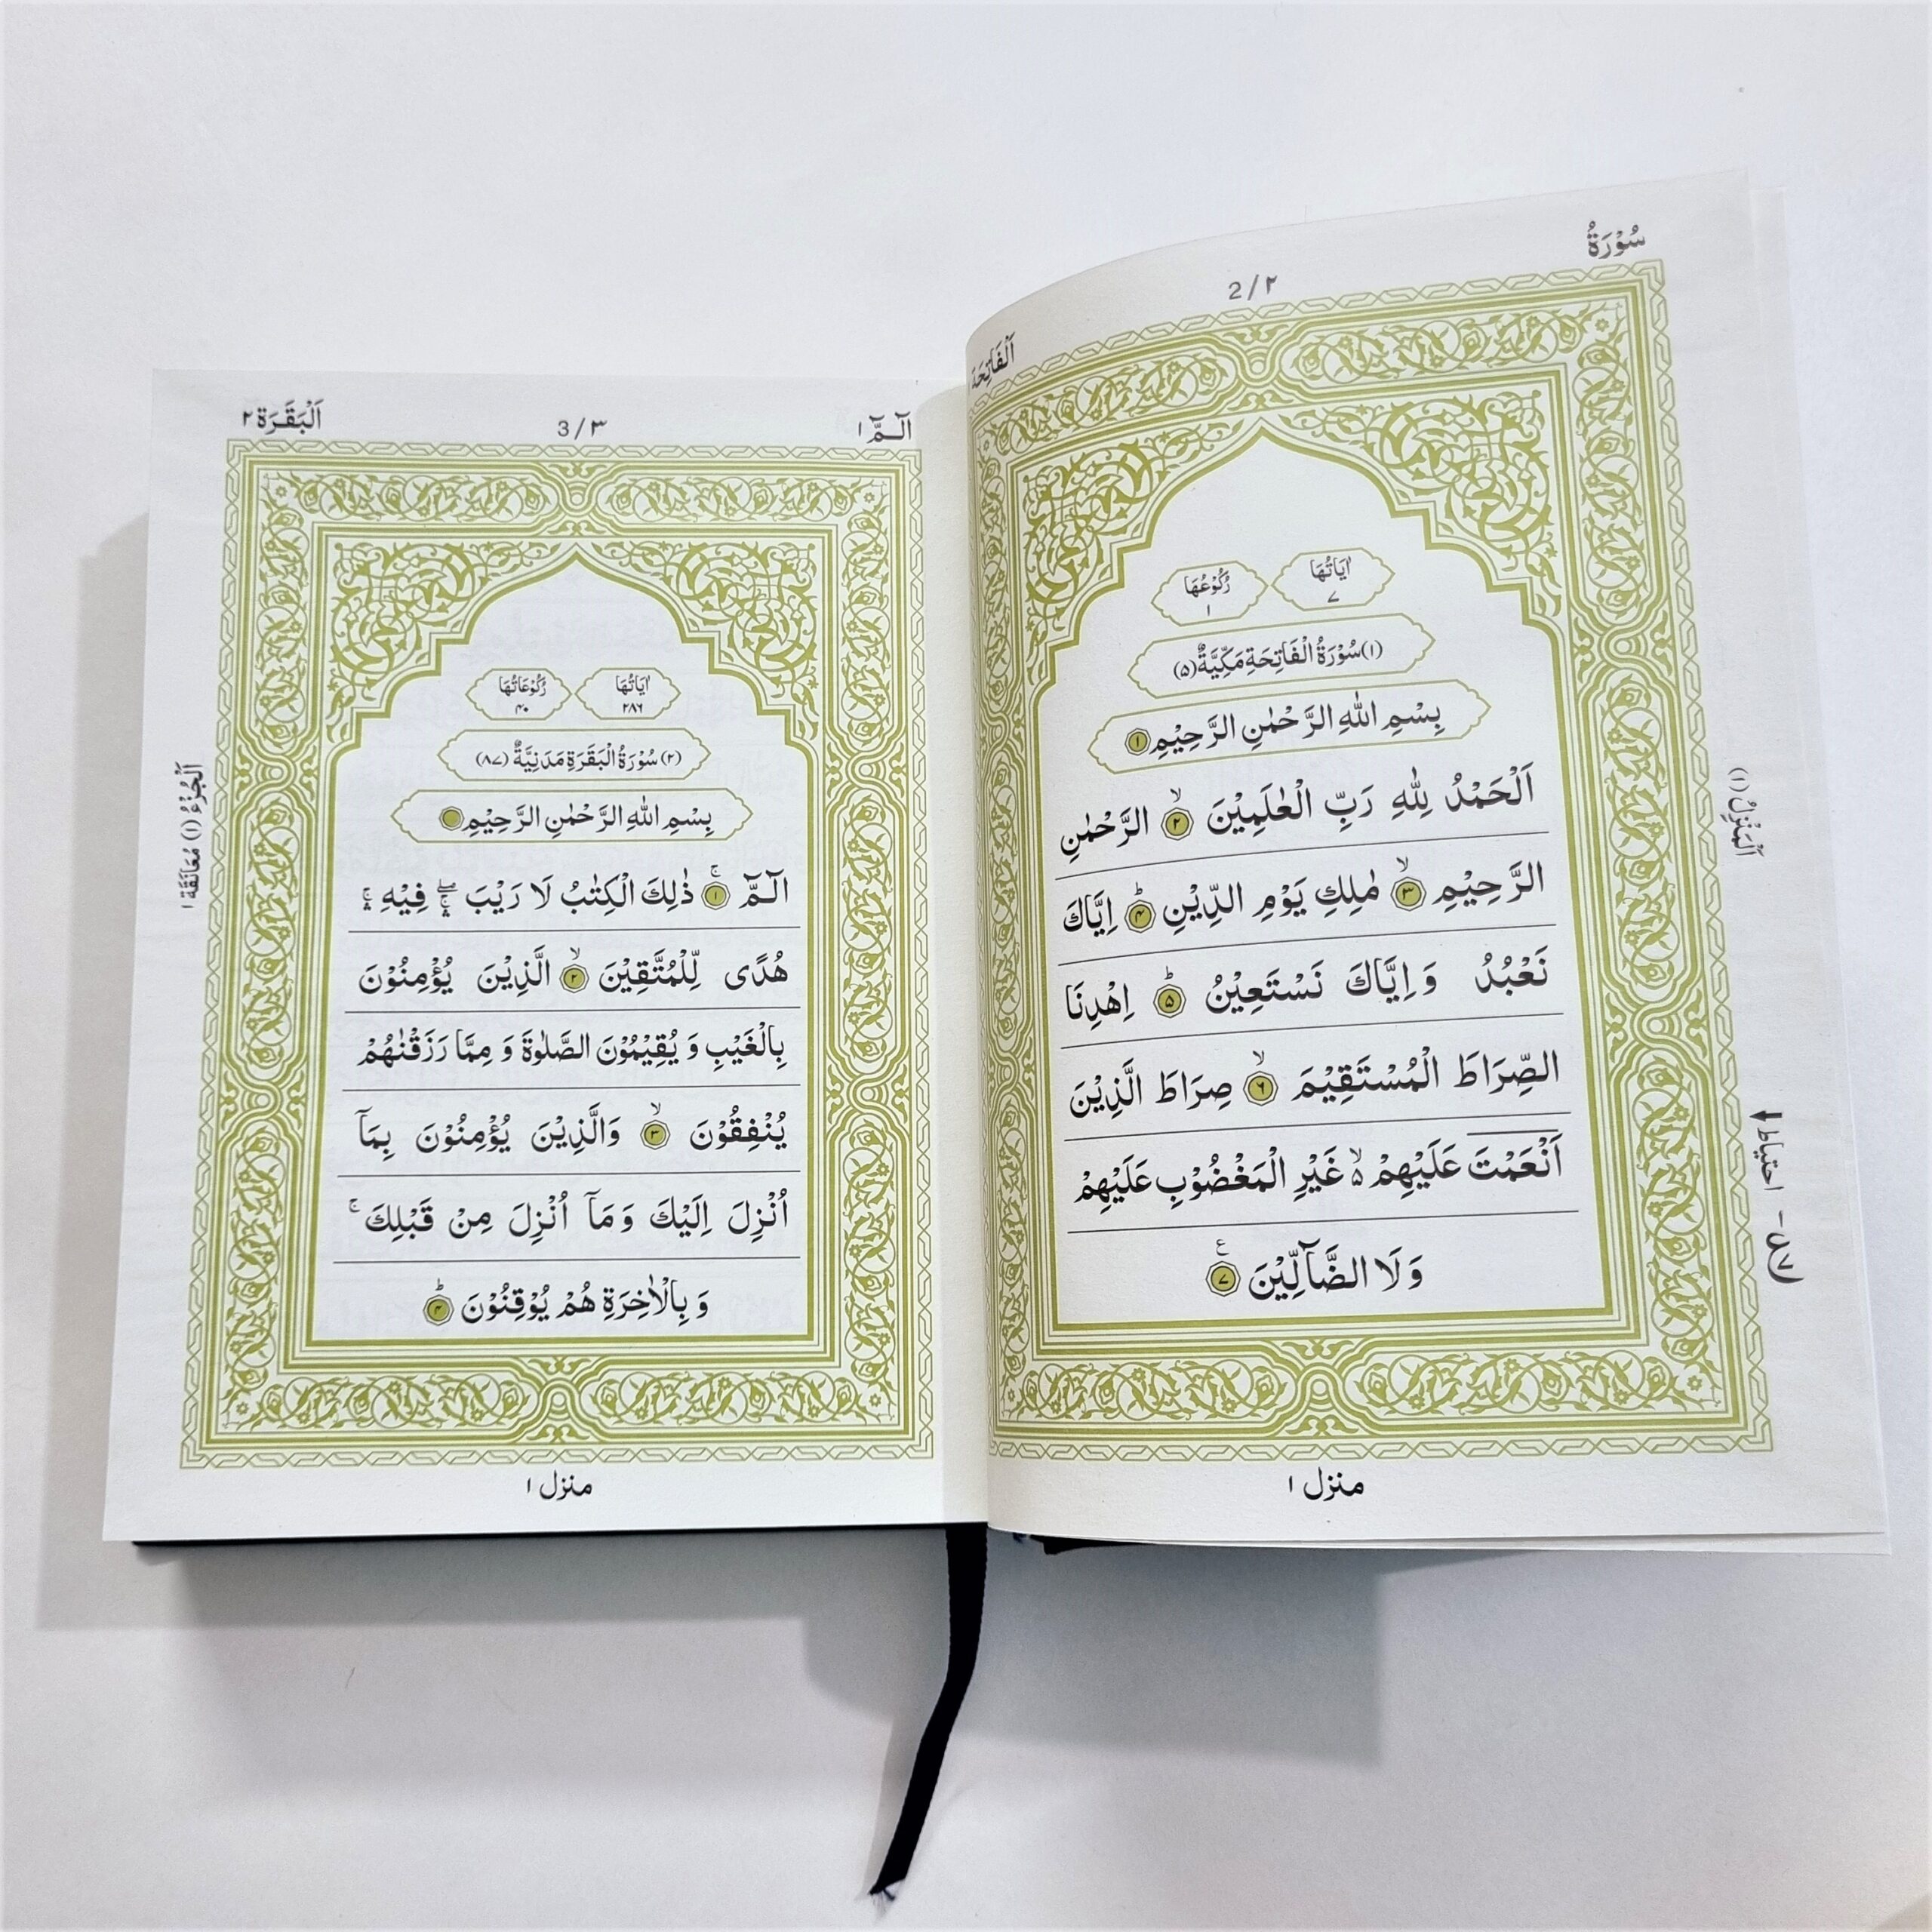 سُوْرَةُ
2/٢
اَلْفَاتِحَة
اٰيَاتُهَا ٧
رُكُوْعُهَا ١
(١) سُوْرَةُ الْفَاتِحَةِ مَكِّيَّةٌ (٥)
بِسْمِ اللّٰهِ الرَّحْمٰنِ الرَّحِيْمِ ١
اَلْحَمْدُ لِلّٰهِ رَبِّ الْعٰلَمِيْنَ ۙ ٢ الرَّحْمٰنِ
الرَّحِيْمِ ۙ ٣ مٰلِكِ يَوْمِ الدِّيْنِ ؕ ۴ اِيَّاكَ
نَعْبُدُ وَاِيَّاكَ نَسْتَعِيْنُ ؕ ۵ اِهْدِنَا
الصِّرَاطَ الْمُسْتَقِيْمَ ۙ ۶ صِرَاطَ الَّذِيْنَ
اَنْعَمْتَ عَلَيْهِمْ ۙ۵ غَيْرِ الْمَغْضُوْبِ عَلَيْهِمْ
وَلَا الضَّآلِّيْنَ ٧ ع
منزل ١
اَلْمَنْزِلُ (١)
احتياط
اَلْبَقَرَة ٢
3/٣
الٓمّٓ ١
اٰيَاتُهَا ٢٨٦
رُكُوْعَاتُهَا ۴۰
(٢) سُوْرَةُ الْبَقَرَةِ مَدَنِيَّةٌ (٨٧)
بِسْمِ اللّٰهِ الرَّحْمٰنِ الرَّحِيْمِ
الٓمّٓ ۚ ١ ذٰلِكَ الْكِتٰبُ لَا رَيْبَ ۛۖ فِيْهِ ۛۚ
هُدًى لِّلْمُتَّقِيْنَ ۙ ٢ الَّذِيْنَ يُؤْمِنُوْنَ
بِالْغَيْبِ وَ يُقِيْمُوْنَ الصَّلٰوةَ وَ مِمَّا رَزَقْنٰهُمْ
يُنْفِقُوْنَ ۙ ٣ وَالَّذِيْنَ يُؤْمِنُوْنَ بِمَآ
اُنْزِلَ اِلَيْكَ وَمَآ اُنْزِلَ مِنْ قَبْلِكَ ۚ
وَ بِالْاٰخِرَةِ هُمْ يُوْقِنُوْنَ ؕ ۴
منزل ١
اَلْجُزْءُ (١) مُعَانَقَة ١